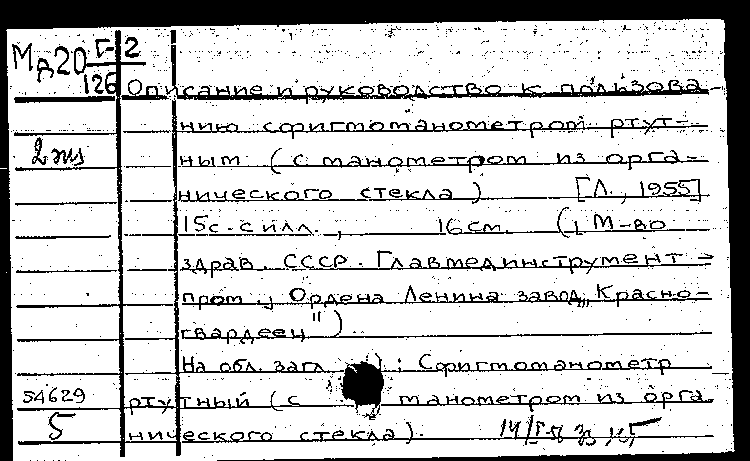 Мд20 Г-2
126
Описание и руководство к пользова-
нию сфигмоманометром ртут-
2 экз
ным (с манометром из орга-
нического стекла) [Л., 1955]
15с. с илл., 16 см. (М-во
здрав. СССР. Главмединструмент-
пром., Ордена Ленина завод „Красно-
гвардеец")
На обл. загл.: Сфигмоманометр
54629
ртутный (с манометром из орга
5
нического стекла).